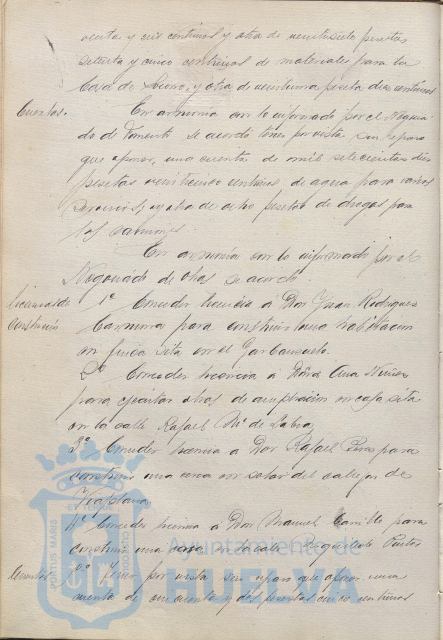 venta y seis centimos y otra de veintisiete pesetas
setenta y cinco centimos de materiales para la
Casa de Socorro, y otra de veintiuna peseta diez centimos
Cuentas. En armonia con lo informado por el Negocia
do de Fomento se acordó tener por vista sin reparo
que oponer, una cuenta de mil setecientas diez
pesetas veinticinco centimos de agua para varios
servicios, y otra de ocho pesetas de drogas para
los
En armonia con lo informado por el
Negociado de Obras se acordó:
Licencias de
construcción
1º Conceder licencia á Don Juan Rodriguez
Carmona para construir una habitacion
en finca sita en el Garbanzuelo.
2º Conceder licencia á Doña Ana Nuñez
para ejecutar obras de ampliacion en casa sita
en la calle Rafael Mª de Labra.
3º Conceder licencia á Don Rafael para
construir una cerca en solar del callejon de
Viaplana
4º Conceder licencia á Don Manuel Carrillo para
construir una casa en la calle Pintor
Cuentas Tener por vista sin reparo que oponer una
cuenta de cincuenta y dos pesetas cinco centimos
Ayuntamiento de
HUELVA
PORTUS MARIS
CUSTODIA